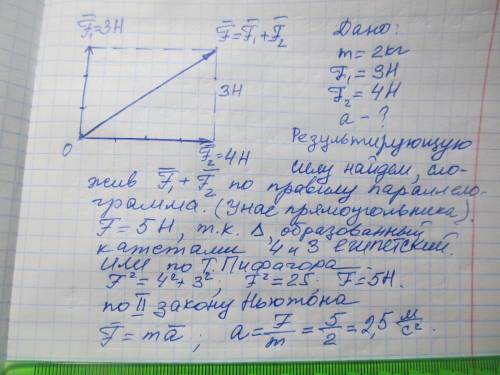 F̅₁=3Н
F̅=F̅₁+F̅₂
3Н
0
F̅₂=4Н
Дано:
m=2кг
F₁=3Н
F₂=4Н
a-?
Результирующую
силу найдем, сло-
жив F̅₁+F̅₂ по правилу параллело-
грамма. (У нас прямоугольника).
F=5Н, т.к. Δ, образованный
катетами 4 и 3 египетский.
Или по Т. Пифагора
F²=4²+3², F²=25; F=5Н.
по II закону Ньютона
F̅=ma̅; a=F/m=5/2=2,5 м/с².